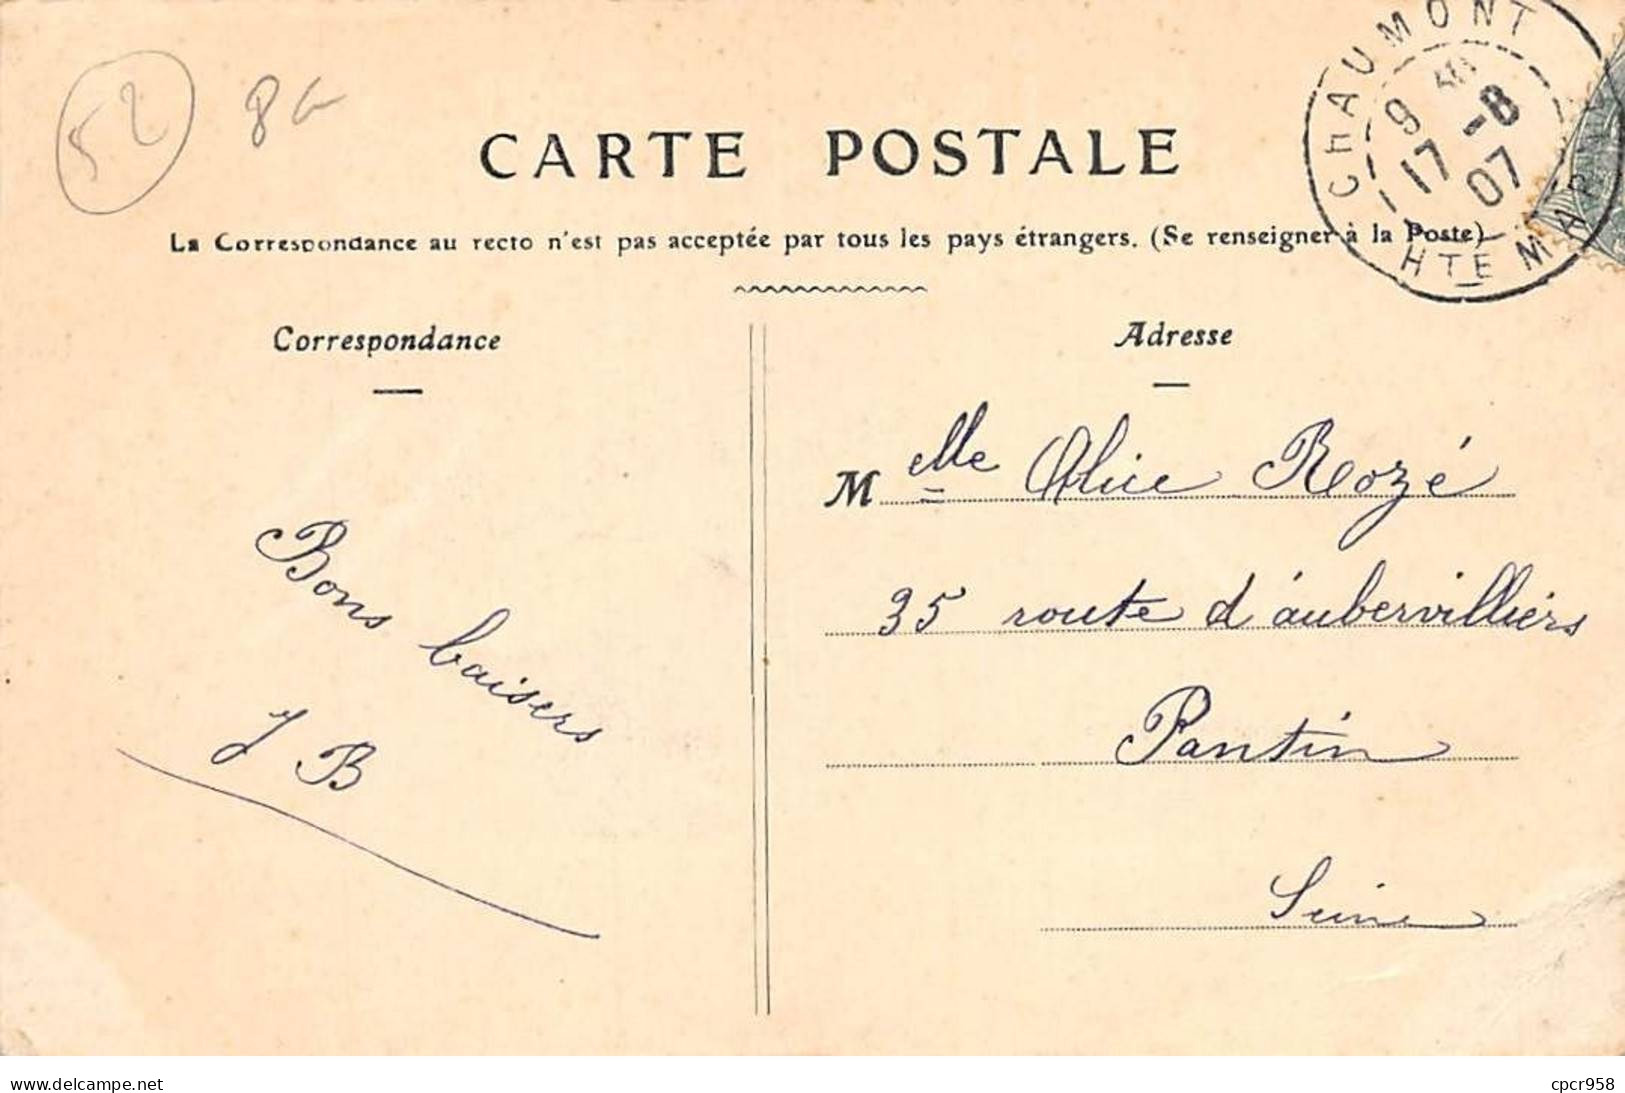 52
CARTE POSTALE
La Correspondance au recto n'est pas acceptée par tous les pays étrangers. (Se renseigner à la Poste)
CHAUMONT
9
17 -8
07
HTE MARNE
Correspondance
Adresse
Bons baisers
J B
M elle Alice Rozé
35 route d'aubervilliers
Pantin
Seine
www.delcampe.net
cpcr958